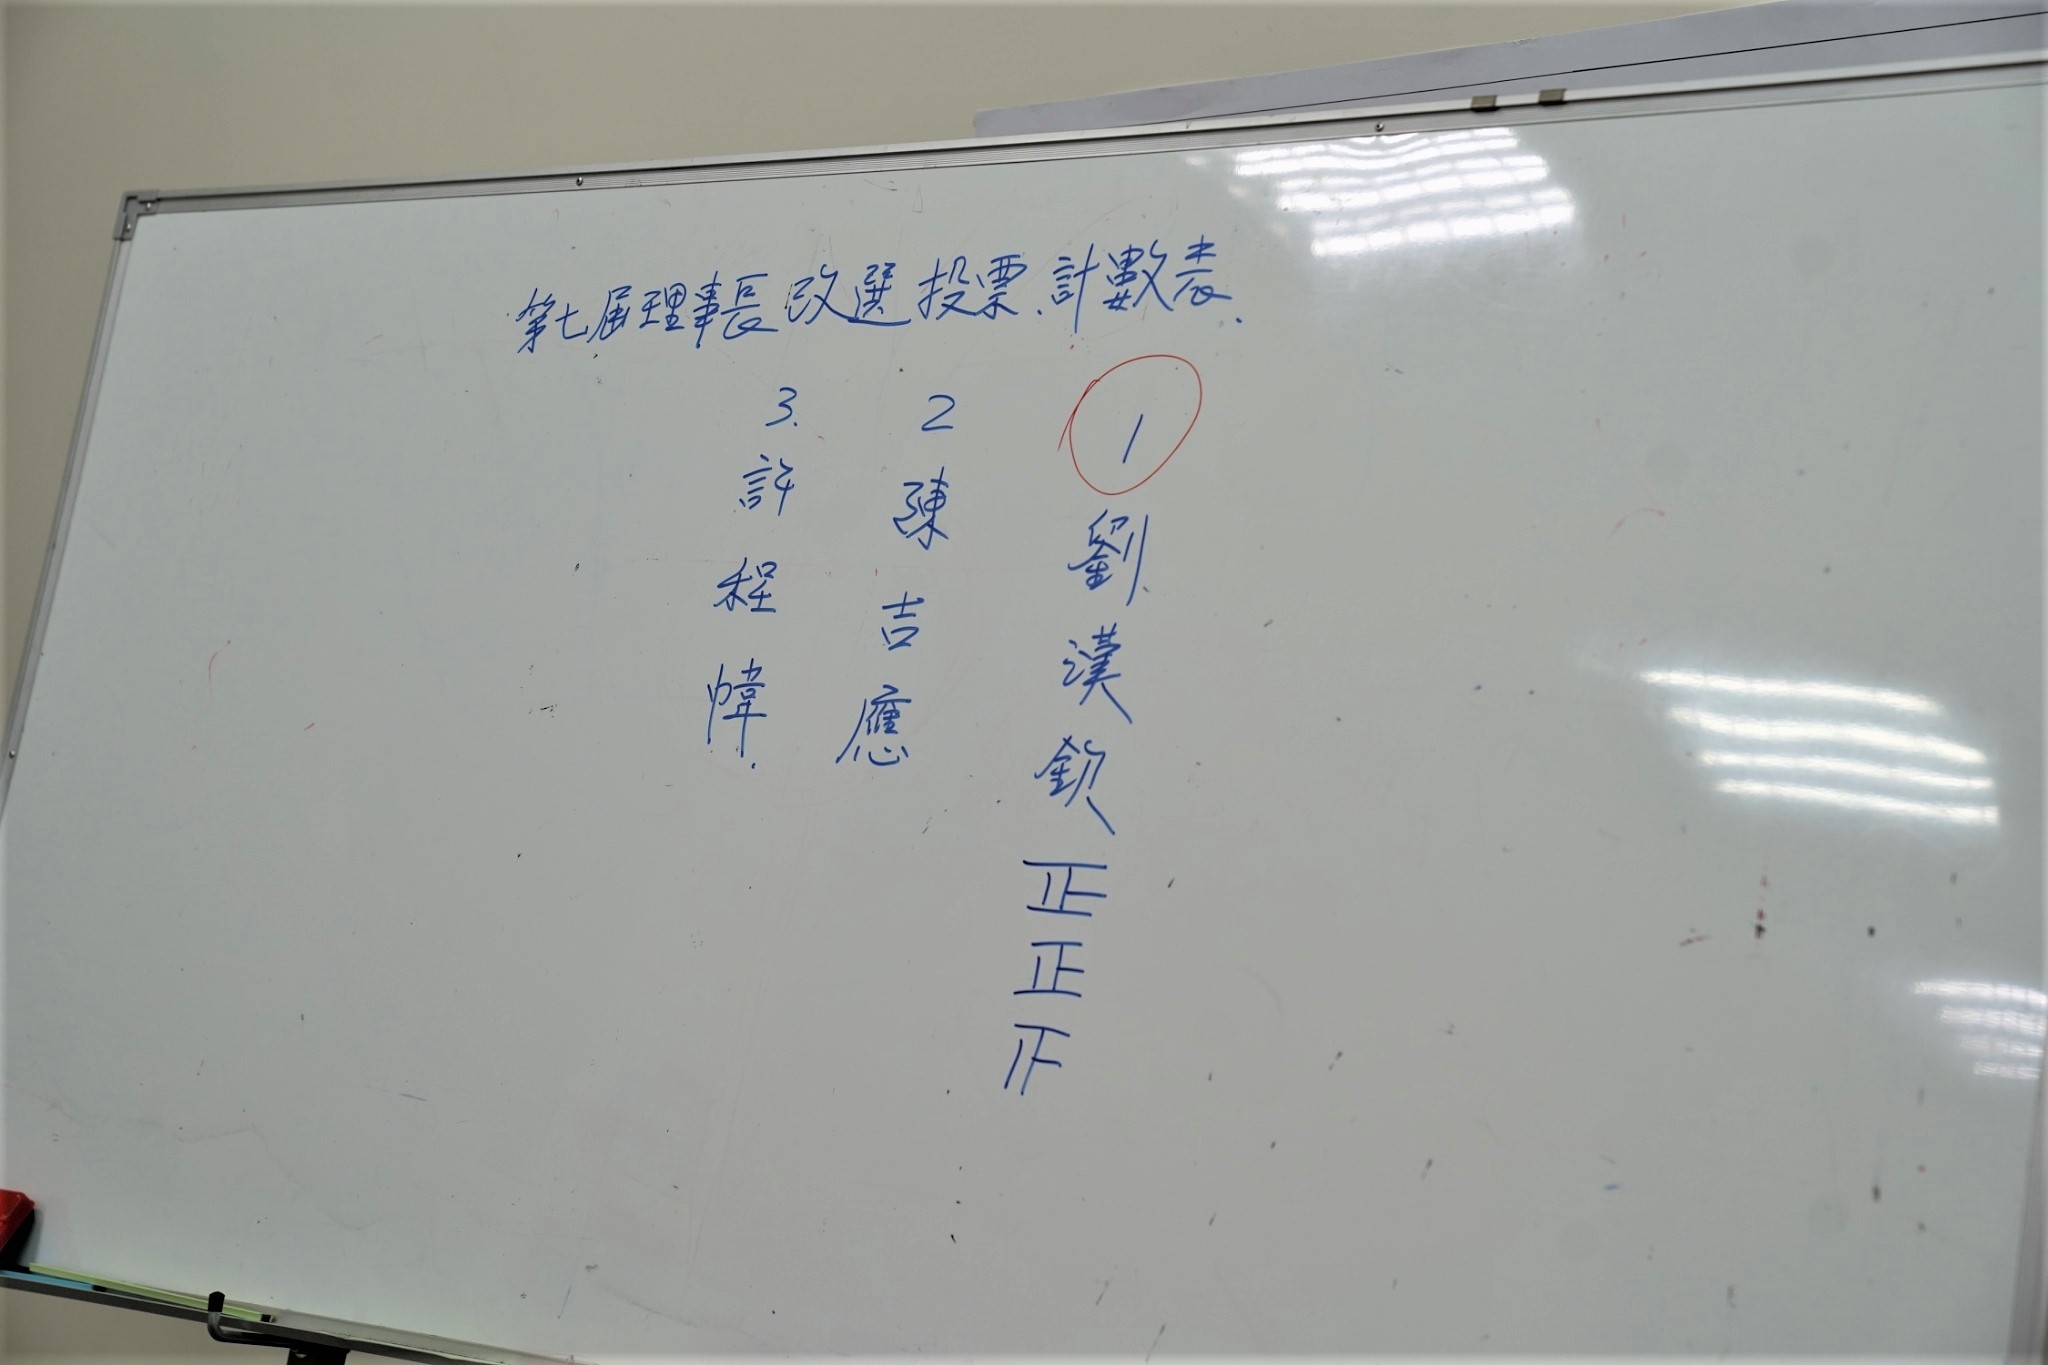 第七屆理事長改選投票.計數表.
1 劉漢欽 正正正
2 陳吉應
3. 許程幃.